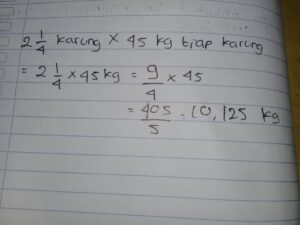 2 1/4 karung × 45 kg tiap karung
= 2 1/4 × 45 kg = 9/4 × 45
= 405/5 = 10,125 kg